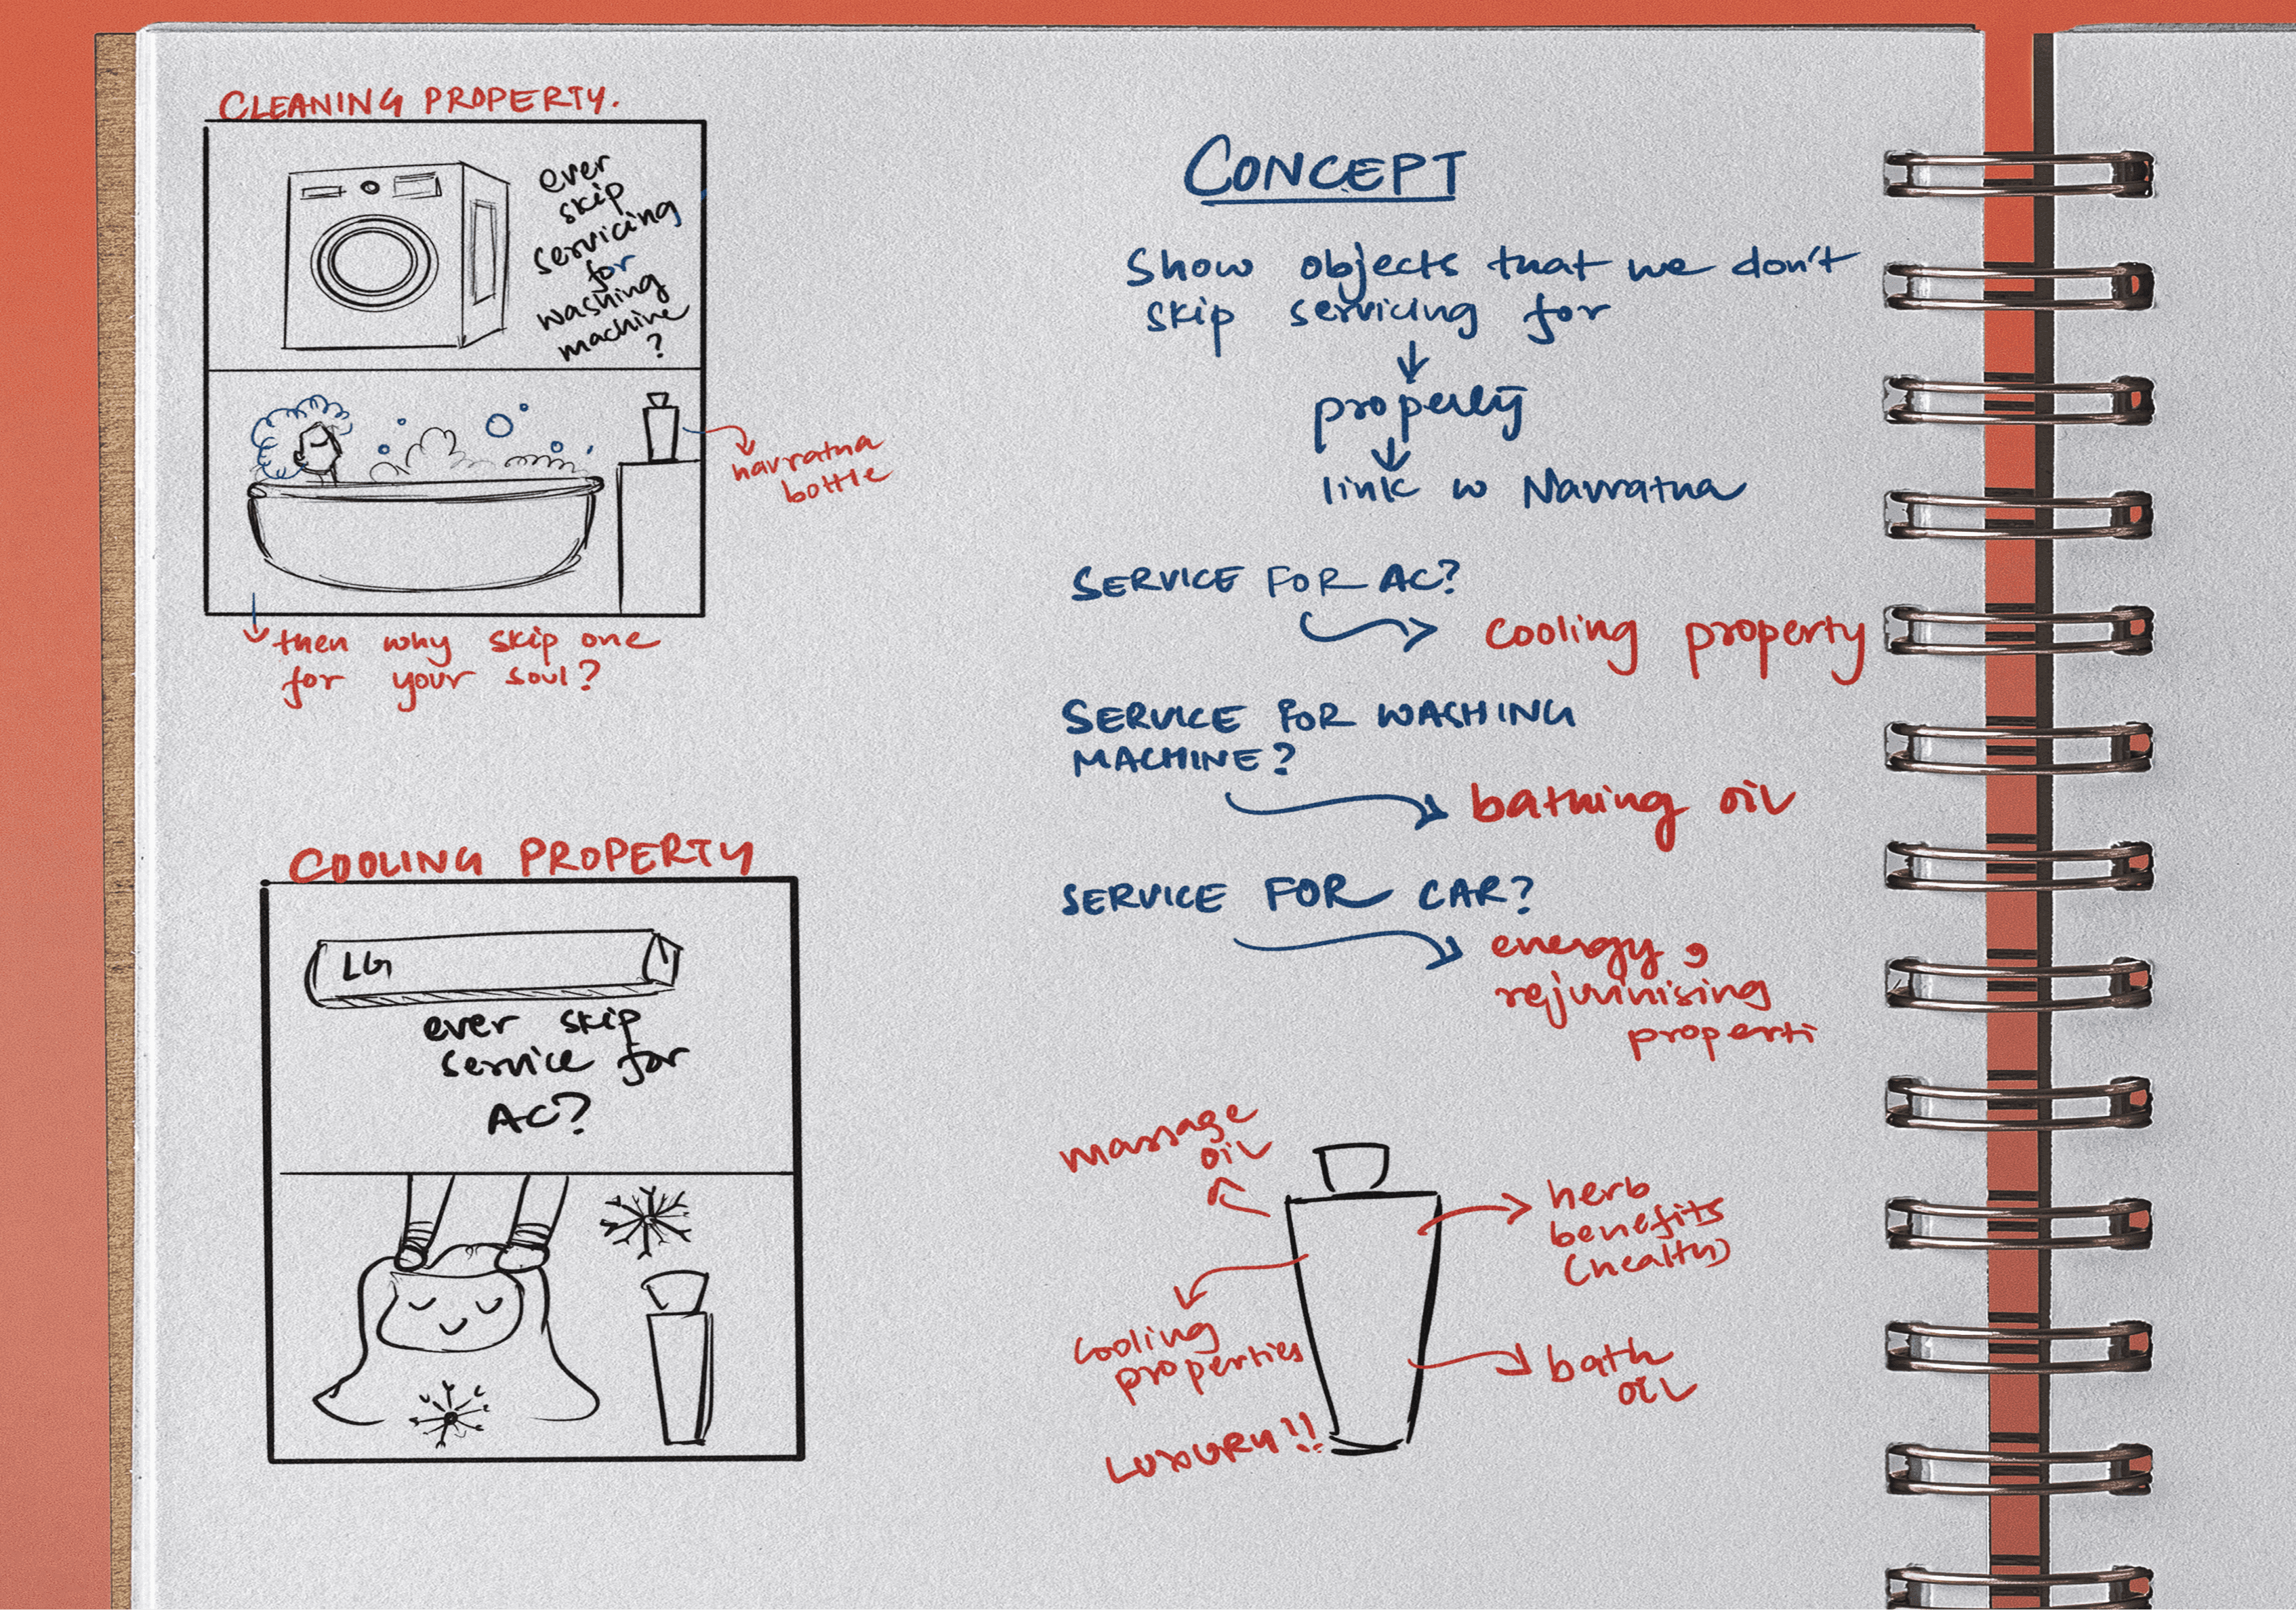 CLEANING PROPERTY.
ever
skip
servicing
for
washing
machine
?
navratna
bottle
then why skip one
for your soul?
COOLING PROPERTY
LG
ever skip
service for
AC?
CONCEPT
Show objects that we don't
skip servicing for
property
link w Navratna
SERVICE FOR AC?
cooling property
SERVICE FOR WASHING
MACHINE?
bathing oil
SERVICE FOR CAR?
energy,
rejuvinising
properti
massage
oil
herb
benefits
(health)
cooling
properties
bath
oil
LUXURY!!